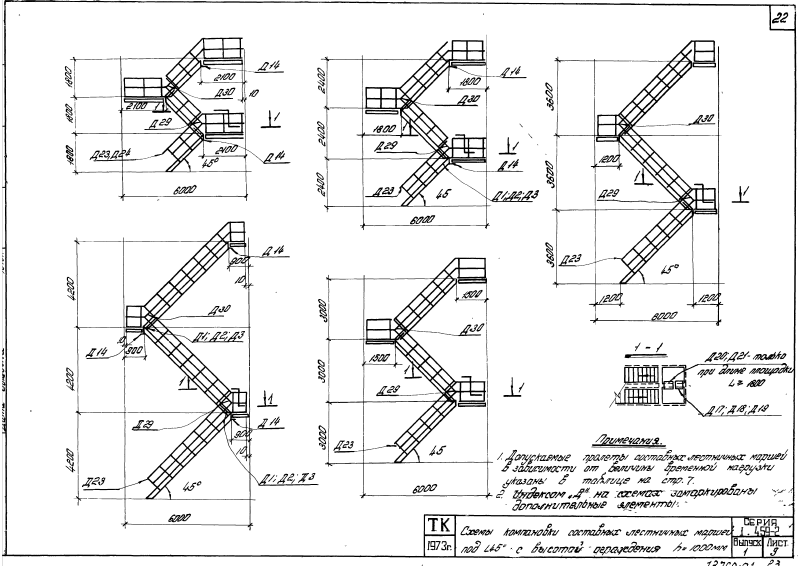 22
1800
1800
1800
2100
Д14
Д30
10
2100
1
Д29
1
Д23,Д24
45°
2100
Д14
6000
2400
2400
2400
Д14
1800
Д30
1800
1
Д29
1
Д14
Д23
45
Д1;Д2;Д3
6000
3600
3600
3600
Д30
1200
1
Д29
1
Д23
45°
1200
1200
6000
4200
4200
4200
Д14
900
10
Д30
Д1;Д2;Д3
10
Д14
900
1
1
Д29
Д14
900
10
Д23
45°
Д1;Д2;Д3
6000
3000
3000
3000
1500
Д30
1500
1
Д29
1
Д23
45
6000
1-1
Д20;Д21-только
при длине площадки
L ≥ 1800
Д17;Д18;Д19
Примечания.
1. Допускаемые пролеты составных лестничных маршей
в зависимости от величины временной нагрузки
указаны в таблице на стр. 7.
2. Индексом „Д" на схемах замаркированы
дополнительные элементы.
ТК
1973г.
Схемы компановки составных лестничных маршей
под ∠45° с высотой ограждения h=1000мм
Серия
1.459-2
Выпуск
1
Лист
9